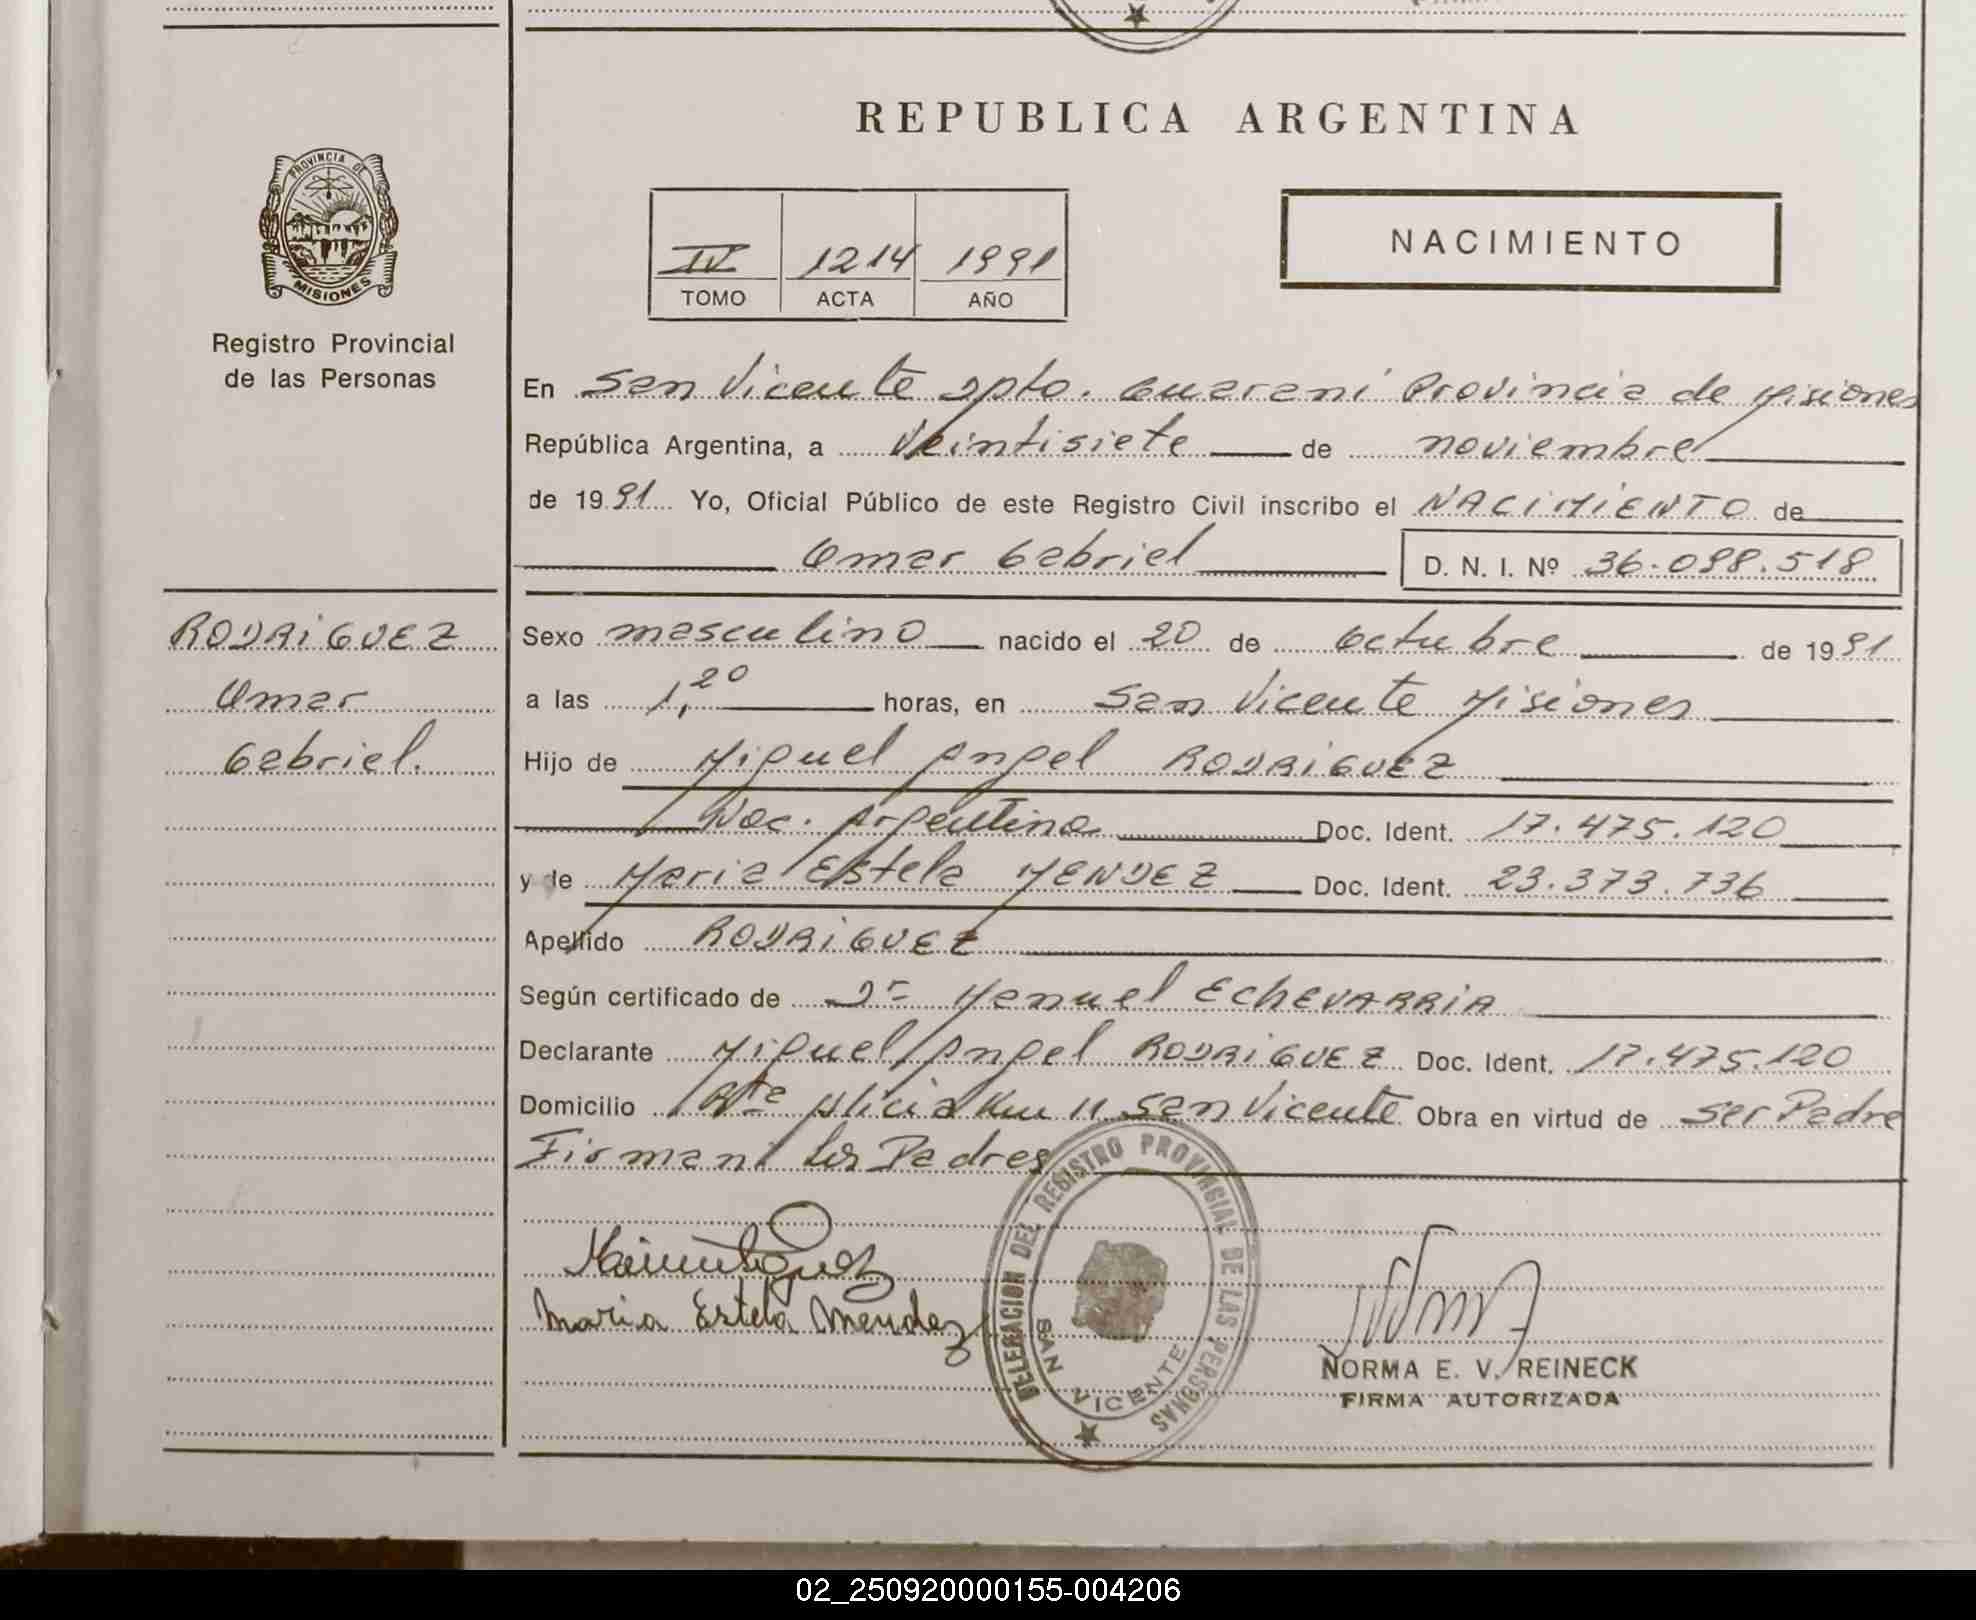 REPUBLICA ARGENTINA
PROVINCIA DE
MISIONES
Registro Provincial
de las Personas
IV 1214 1991
TOMO ACTA AÑO
NACIMIENTO
En San Vicente Dpto. Guarani Provincia de Misiones
República Argentina, a Veintisiete de noviembre
de 1991 Yo, Oficial Público de este Registro Civil inscribo el NACIMIENTO de
Omar Gabriel D. N. I. Nº 36.098.518
RODRIGUEZ
Omar
Gabriel.
Sexo masculino nacido el 20 de Octubre de 1991
a las 1,20 horas, en San Vicente Misiones
Hijo de Miguel Angel RODRIGUEZ
Nac. Argentina Doc. Ident. 17.475.120
y de Maria Estela MENDEZ Doc. Ident. 23.373.736
Apellido RODRIGUEZ
Según certificado de Dr Manuel EChEVARRiA
Declarante Miguel Angel RODRIGUEZ Doc. Ident. 17.475.120
Domicilio Pta Alicia Km 11 San Vicente Obra en virtud de Ser Padre
Firman los Padres
Maria Estela Mendez
DELEGACION DEL REGISTRO PROVINCIAL DE LAS PERSONAS
SAN VICENTE
NORMA E. V. REINECK
FIRMA AUTORIZADA
02_250920000155-004206